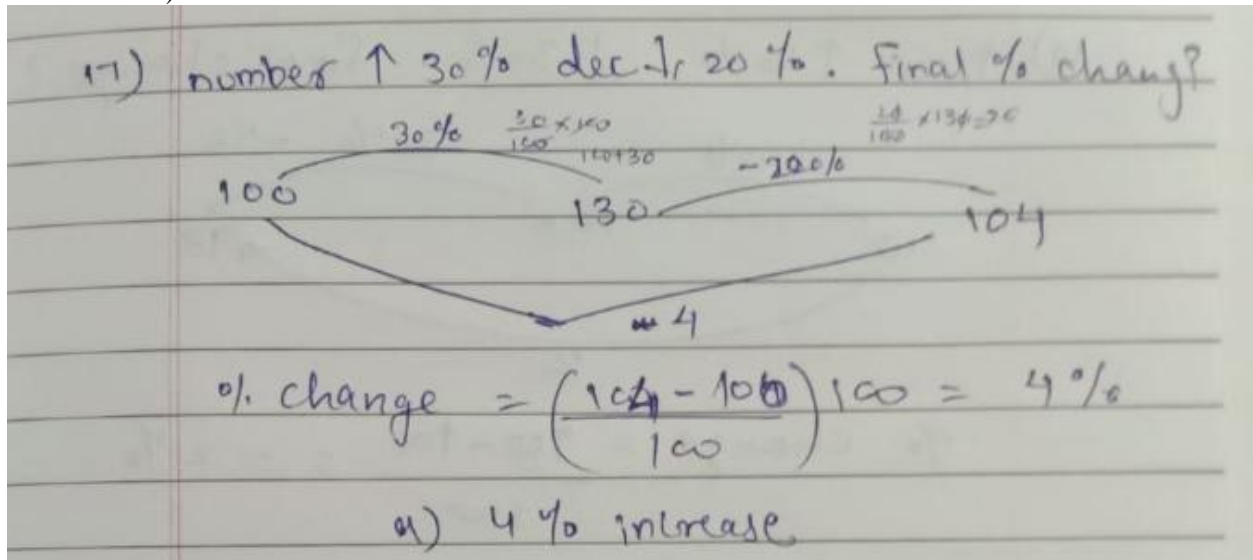 17) number ↑ 30% dec ↓ 20%. Final % chang?
30% 30/100 × 100 20/100 × 130 = 26
100+30 -20%
100 130 104
4
% change = (104 - 100 / 100) 100 = 4%
a) 4% increase